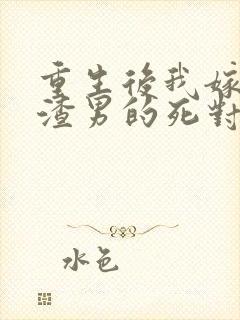 重生後我嫁
渣男的死對
水色